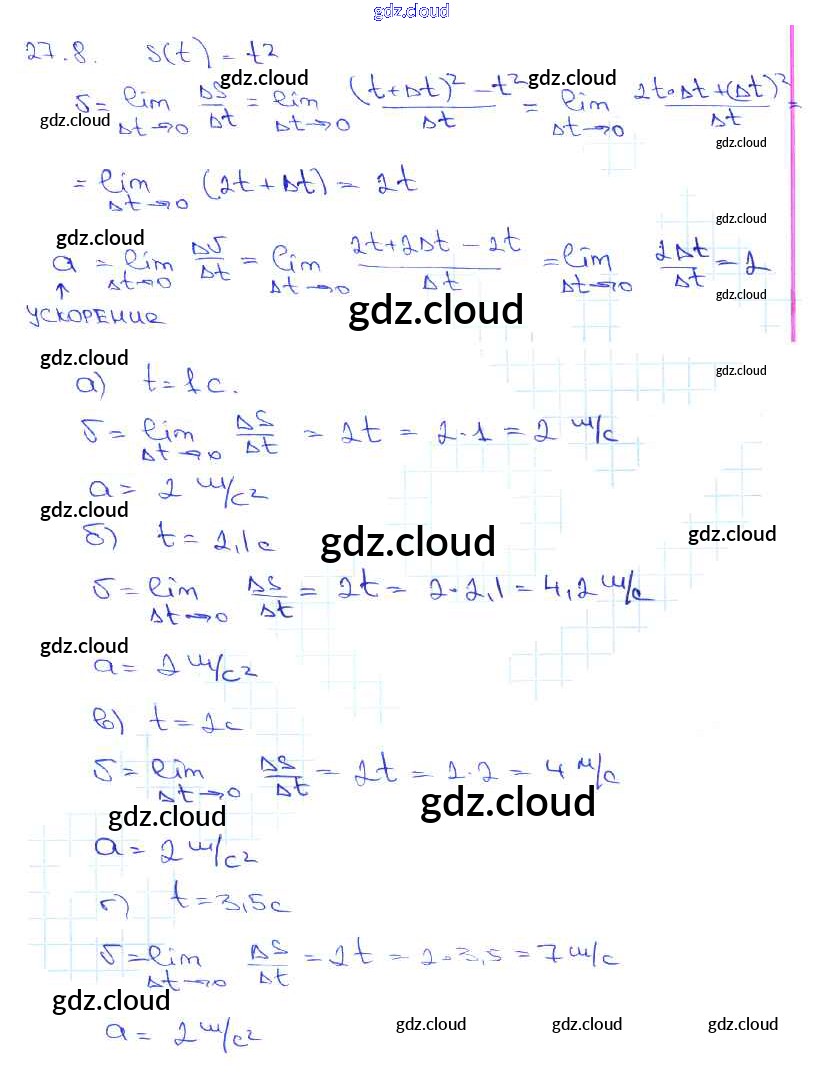 gdz.cloud
27.8. S(t) = t²
gdz.cloud gdz.cloud
υ = lim Δt→0 ΔS/Δt = lim Δt→0 ((t+Δt)² − t²)/Δt = lim Δt→0 (2t·Δt+(Δt)²)/Δt =
gdz.cloud
gdz.cloud
= lim Δt→0 (2t + Δt) = 2t
gdz.cloud
gdz.cloud
a = lim Δt→0 Δυ/Δt = lim Δt→0 (2t+2Δt − 2t)/Δt = lim Δt→0 2Δt/Δt = 2
↑
gdz.cloud
УСКОРЕНИЕ
gdz.cloud
gdz.cloud
gdz.cloud
а) t = 1 с.
υ = lim Δt→0 ΔS/Δt = 2t = 2·1 = 2 м/с
a = 2 м/с²
gdz.cloud
б) t = 2,1 с
gdz.cloud gdz.cloud
υ = lim Δt→0 ΔS/Δt = 2t = 2·2,1 = 4,2 м/с
gdz.cloud
a = 2 м/с²
в) t = 2с
υ = lim Δt→0 ΔS/Δt = 2t = 2·2 = 4 м/с
gdz.cloud gdz.cloud
a = 2 м/с²
г) t = 3,5с
υ = lim Δt→0 ΔS/Δt = 2t = 2·3,5 = 7 м/с
gdz.cloud
a = 2 м/с²
gdz.cloud gdz.cloud gdz.cloud